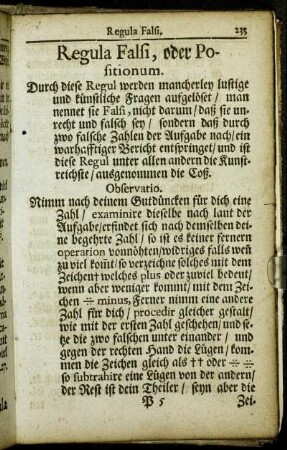 Regula Falſi. 235
Regula Falſi, oder Po-
ſitionum.
Durch dieſe Regul werden mancherley luſtige
und künſtliche Fragen aufgelöſet / man
nennet ſie Falſi, nicht darum / daß ſie un-
recht und falſch ſey / ſondern daß durch
zwo falſche Zahlen der Aufgabe nach / ein
warhafftiger Bericht entſpringet / und iſt
dieſe Regul unter allen andern die Kunſt-
reichſte / ausgenommen die Coß.
Obſervatio.
Nimm nach deinem Gutdüncken für dich eine
Zahl / examinire dieſelbe nach laut der
Aufgabe / erfindet ſich nach demſelben dei-
ne begehrte Zahl / ſo iſt es keiner fernern
operation vonnöhten / widriges falls weñ
zu viel kom̃t / ſo verzeichne ſolches mit dem
Zeichen † welches plus oder zuviel bedeut /
wenn aber weniger kommt / mit dem Zei-
chen ÷ minus, Ferner nimm eine andere
Zahl für dich / procedir gleicher geſtalt /
wie mit der erſten Zahl geſchehen / und ſe-
tze die zwo falſchen unter einander / und
gegen der rechten Hand die Lügen / kom-
men die Zeichen gleich als †† oder ÷ ÷
ſo ſubtrahire eine Lügen von der andern /
der Reſt iſt dein Theiler / ſeyn aber die
P 5 Zei-